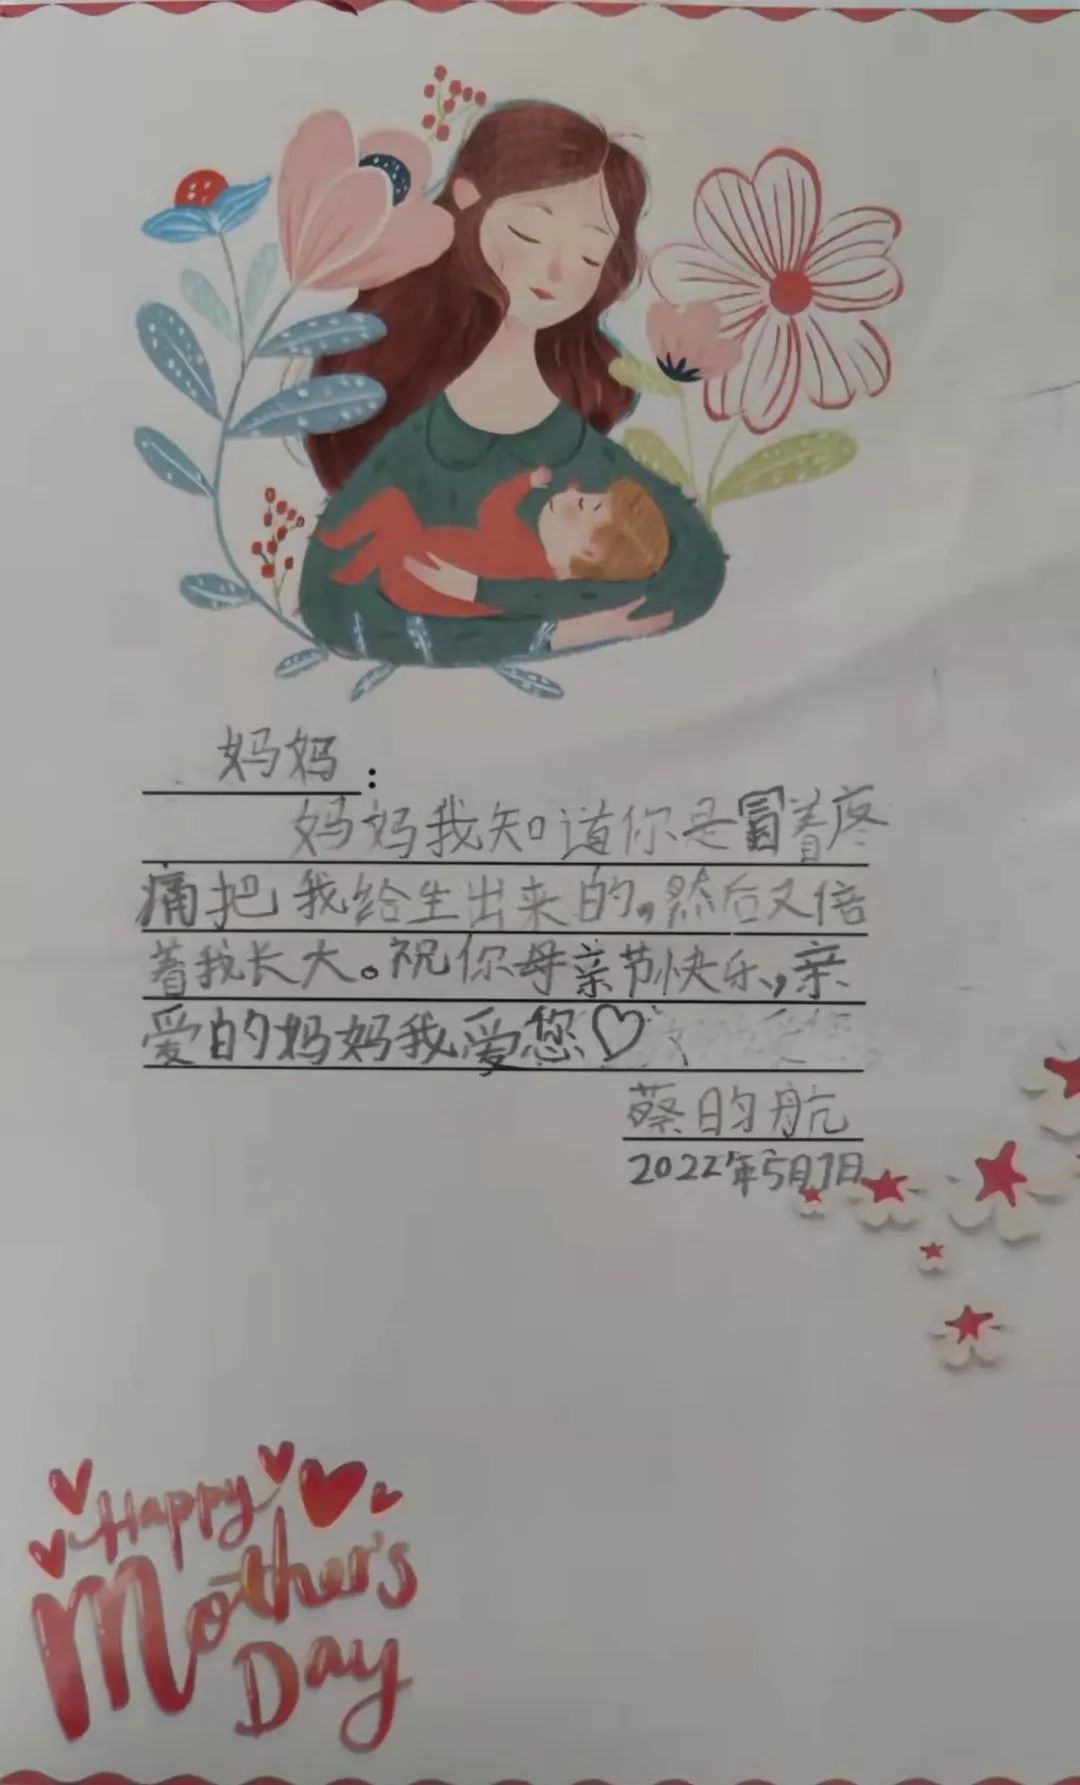 妈妈：
妈妈我知道你是冒着疼
痛把我给生出来的，然后又倍
着我长大。祝你母亲节快乐，亲
爱的妈妈我爱您♡
蔡昀航
2022年5月7日
Happy
Mother's
Day